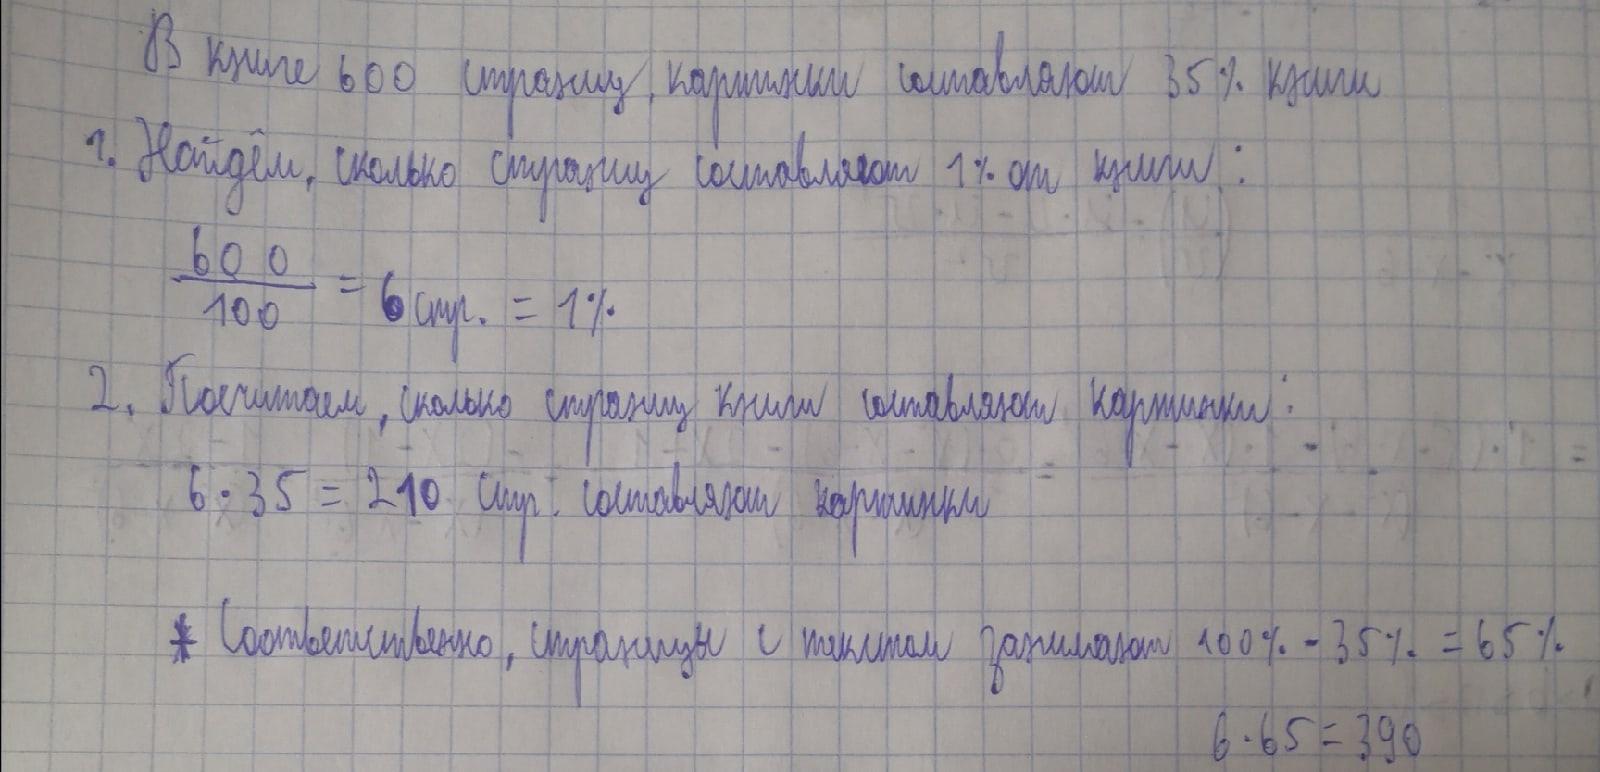 В книге 600 страниц, картинки составляют 35% книги
1. Найдём, сколько страниц составляют 1% от книги:
600
100
= 6 стр. = 1%
2. Посчитаем, сколько страниц книги составляют картинки:
6 · 35 = 210 стр. составляют картинки
* Соответственно, страницы с текстом занимают 100% - 35% = 65%
6 · 65 = 390